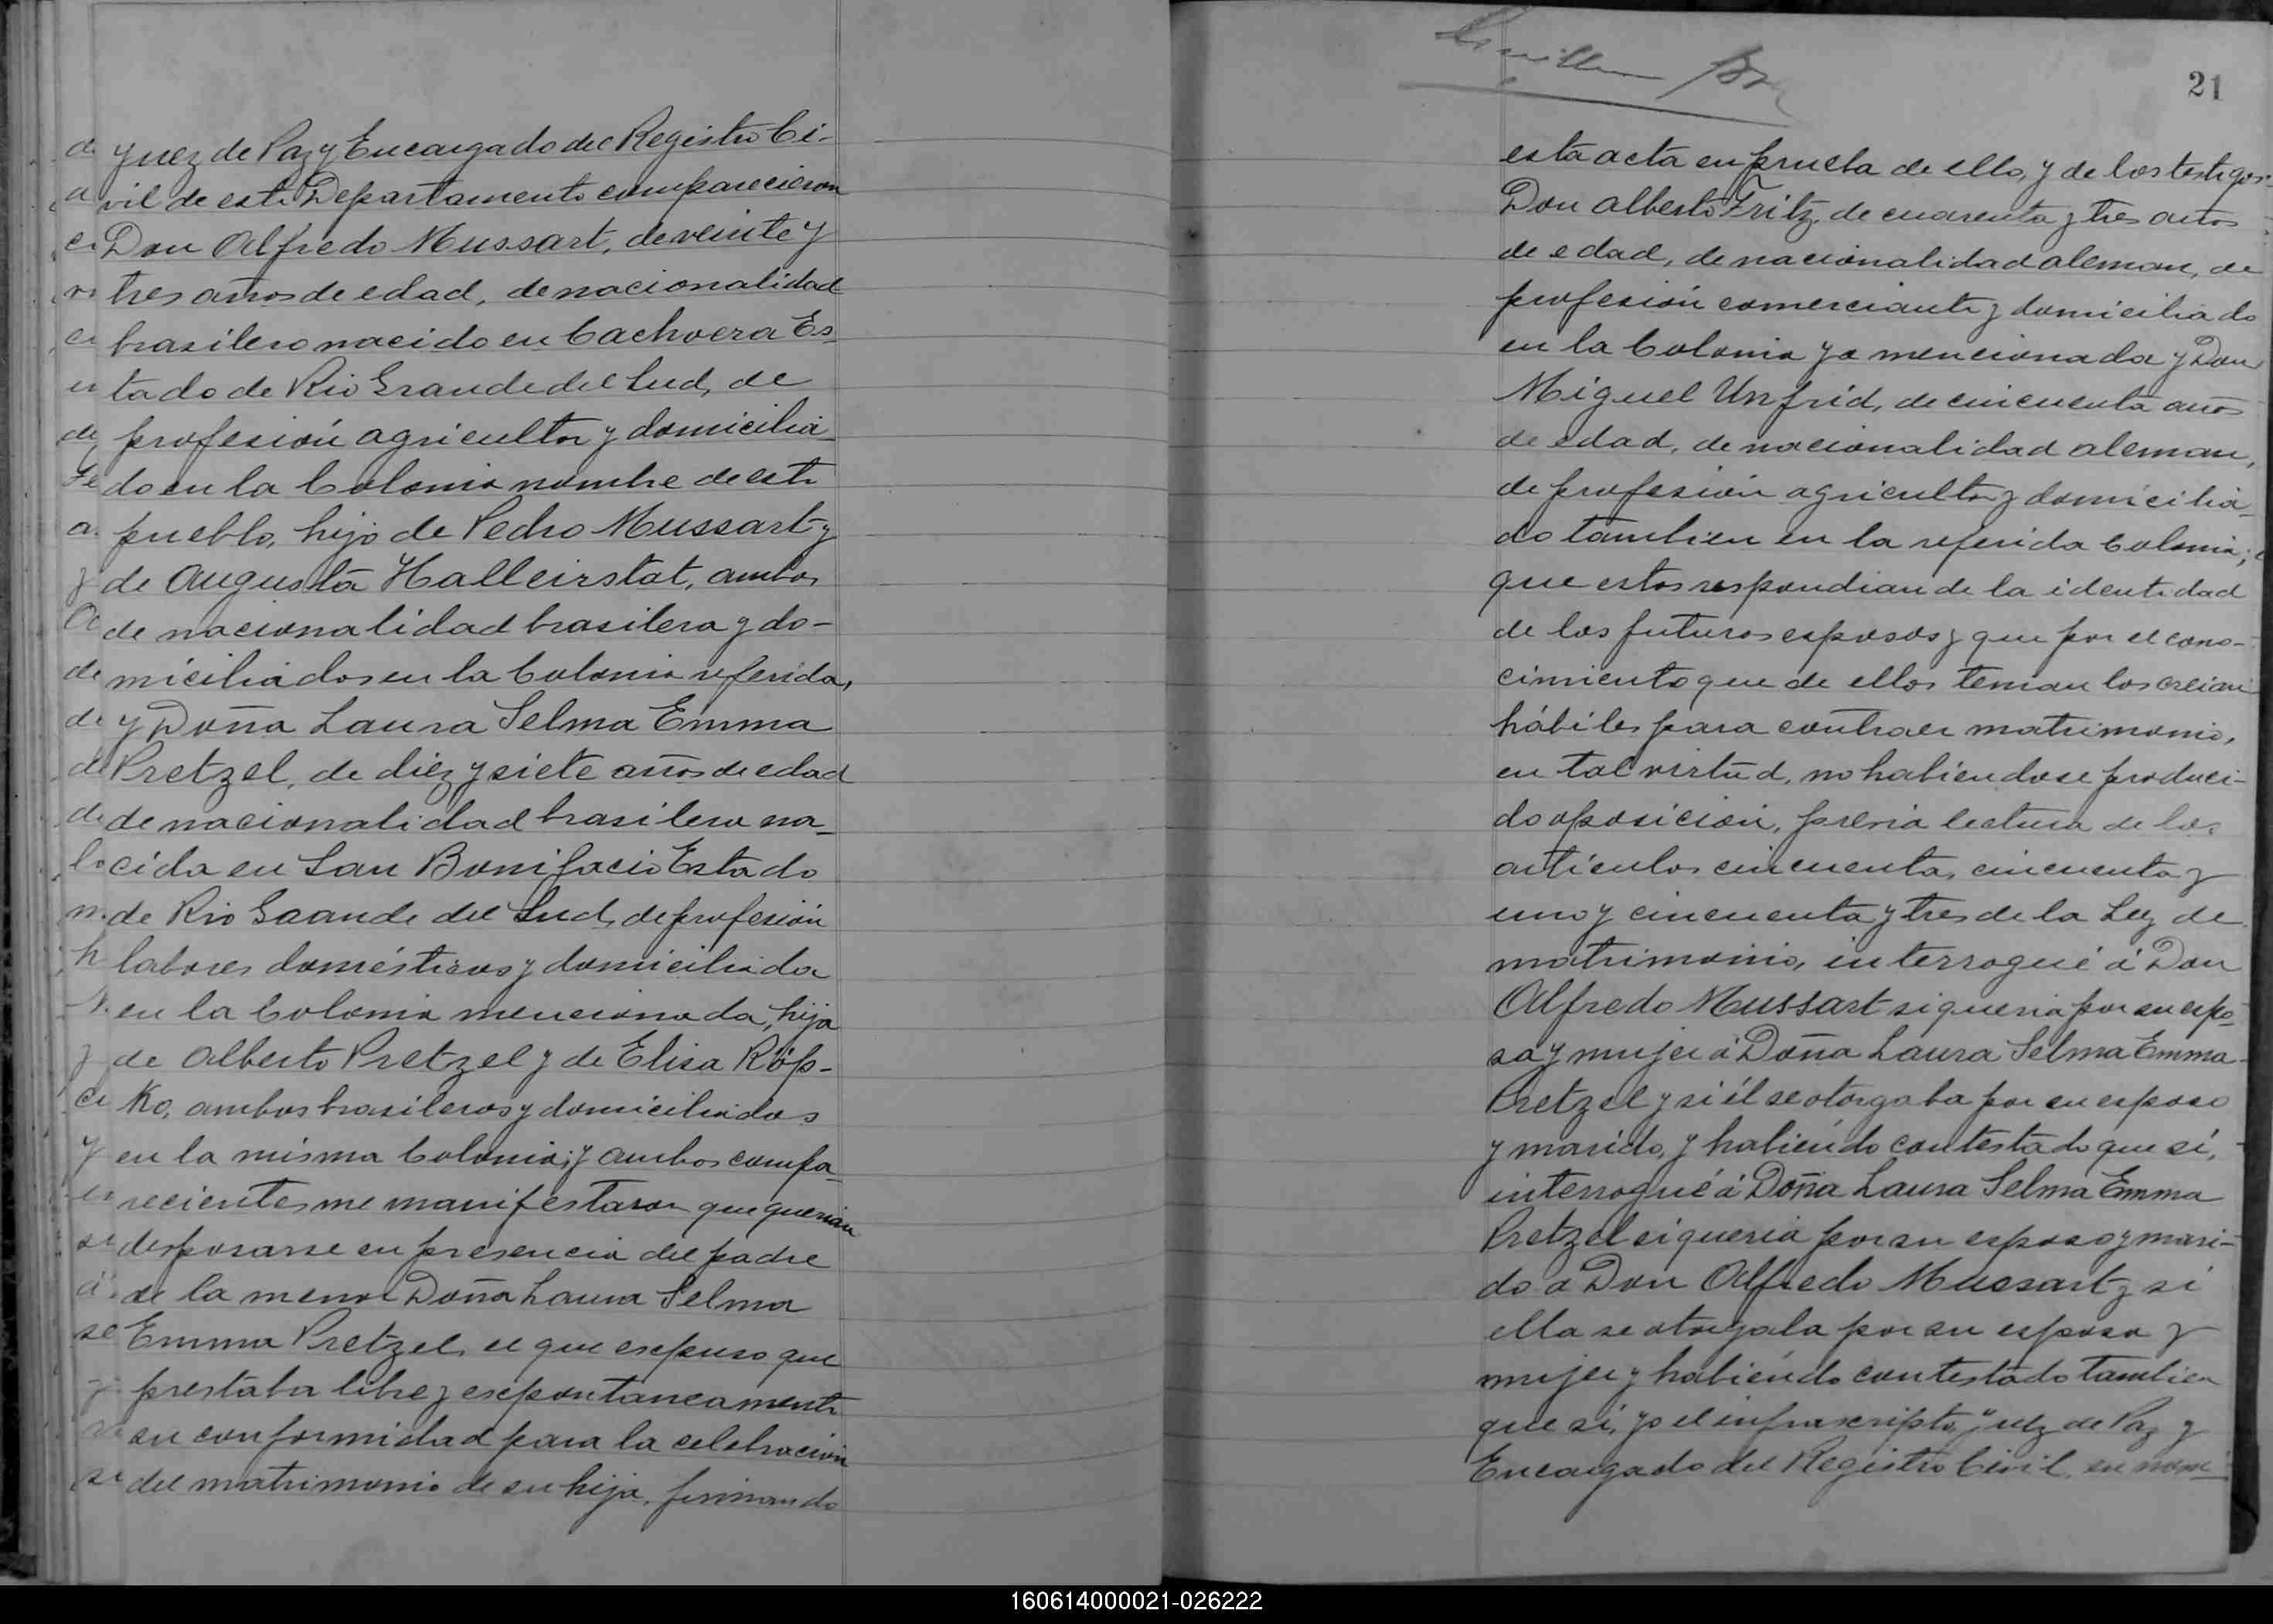 Juez de Paz y Encargado del Registro Ci-
vil de este Departamento comparecieron
Don Alfredo Mussart, de veinte y
tres años de edad, de nacionalidad
brasilero nacido en Cachoera Es-
tado de Rio Grande del Sud, de
profesión agricultor y domicilia-
do en la Colonia nombre de este
pueblo, hijo de Pedro Mussart y
de Augusta Halleirstat, ambos
de nacionalidad brasilera y do-
miciliados en la Colonia referida,
y Doña Laura Selma Emma
Pretzel, de diez y siete años de edad
de nacionalidad brasilera na-
cida en San Bonifacio Estado
de Rio Gaande del Sud, de profesión
labores domésticos y domiciliada
en la Colonia mencionada, hija
de Alberto Pretzel y de Elisa Röp-
Ko, ambos brasileros y domiciliados
en la misma Colonia; y ambos compa-
recientes me manifestaron que querian
desposarse en presencia del padre
de la menor Doña Laura Selma
Emma Pretzel, el que esepuso que
prestaba libre y esepontaneamente
su conformidad para la celebracion
del matrimonio de su hija, firmando
21
esta acta en prueba de ello, y de los testigos
Don Alberto Fritz, de cuarenta y tres años
de edad, de nacionalidad aleman, de
profesión comerciante y domiciliado
en la Colonia ya mencionada y Don
Miguel Unfrid, de cincuenta años
de edad, de nacionalidad aleman,
de profesión agricultor y domicilia-
do tambien en la referida Colonia;
que estos respondian de la identidad
de los futuros esposos y que por el cono-
cimiento que de ellos tenian los creian
hábiles para contraer matrimonio,
en tal virtud, no habiendose produci-
do oposición, previa lectura de los
artículos cincuenta, cincuenta y
uno y cincuenta y tres de la Ley de
matrimonio, interrogué á Don
Alfredo Mussart si queria por su espo-
sa y mujer á Doña Laura Selma Emma
Pretzel y si él se otorgaba por su esposo
y marido, y habiendo contestado que sí,
interrogué á Doña Laura Selma Emma
Pretzel si queria por su esposo y mari-
do a Don Alfredo Mussart y si
ella se otorgaba por su esposa y
mujer y habiendo contestado tambien
que sí, yo el infrascripto, Juez de Paz y
Encargado del Registro Civil, en nom
160614000021-026222